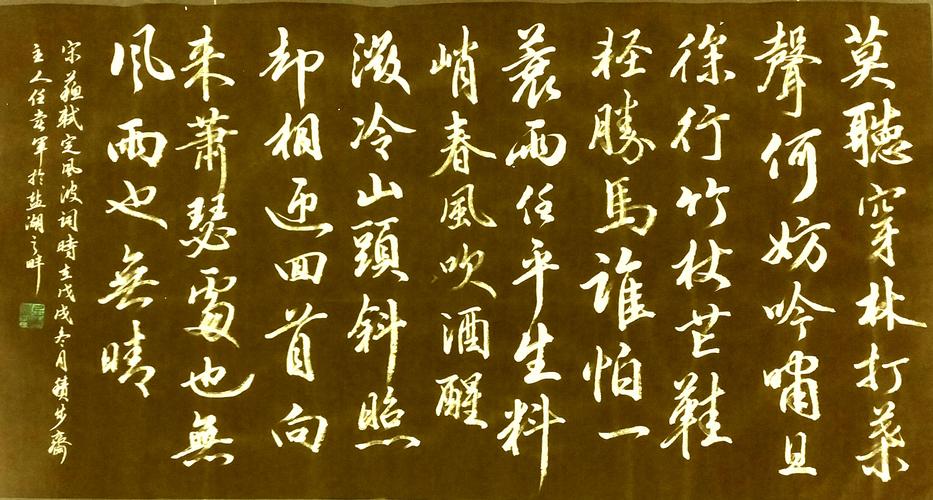 莫聽穿林打葉
聲何妨吟嘯且
徐行竹杖芒鞋
輕勝馬誰怕一
蓑雨任平生料
峭春風吹酒醒
微冷山頭斜照
却相迎回首向
来蕭瑟處也無
风雨也無晴
宋蘇軾定風波詞時在戊戌冬月積步齋
主人任軍於盐湖之畔